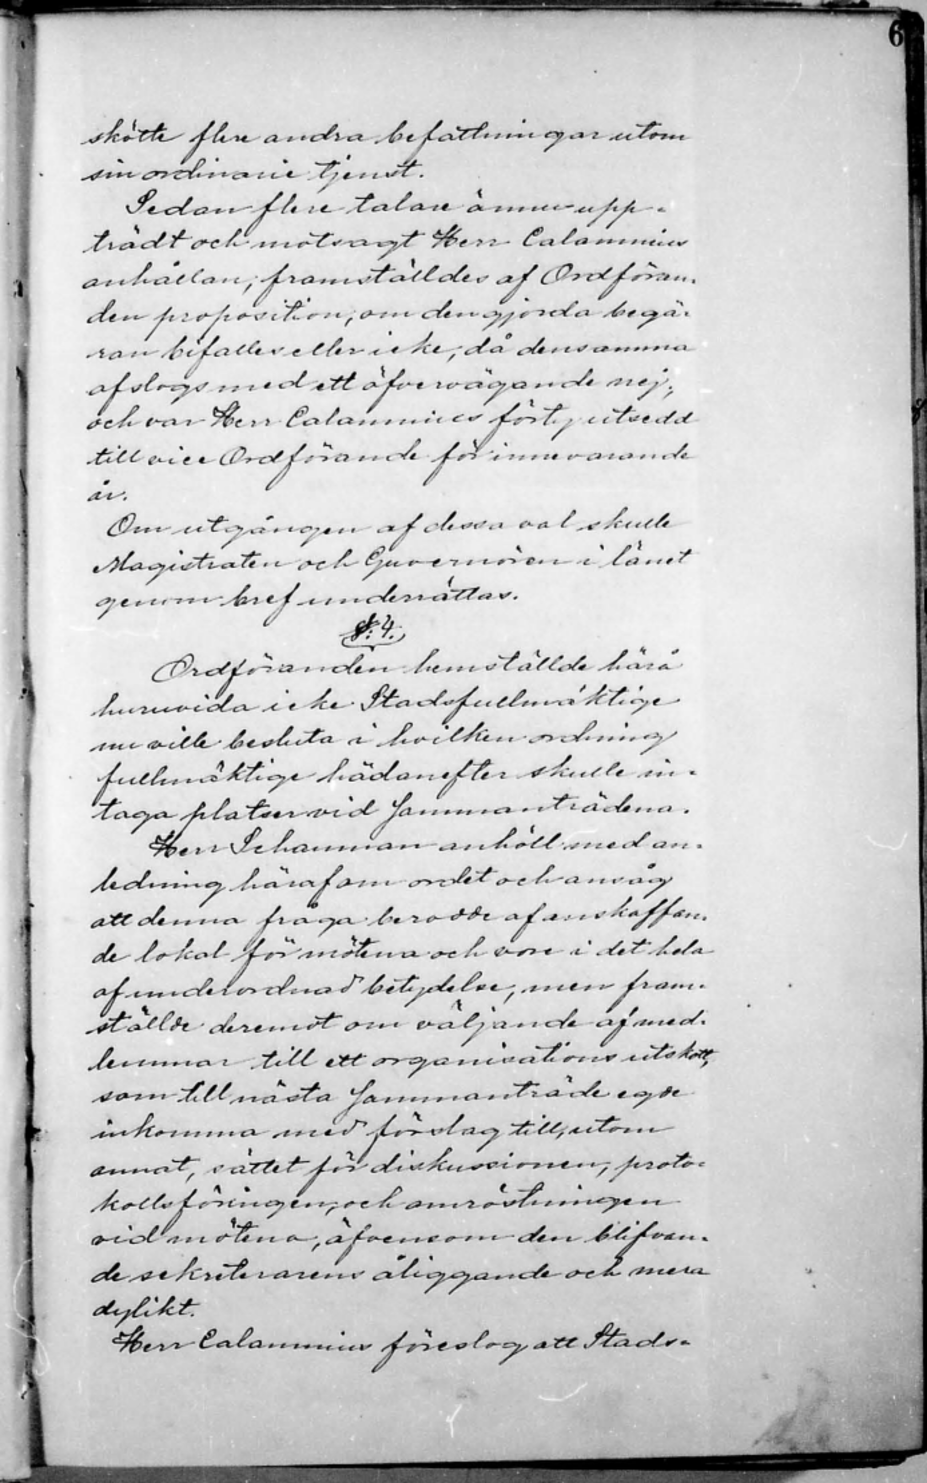 6
skötte flere andra befattningar utom
sin ordinarie tjenst.
Sedan flere talare ännu upp-
trädt och motsagt Herr Calamnius
anhållan, framställdes af Ordföran-
den proposition, om den gjorda begä-
ran bifalles eller icke, då densamma
afslogs med ett öfvervägande nej,
och var Herr Calamnius förty utsedd
till vice Ordförande för innevarande
år.
Om utgången af dessa val skulle
Magistraten och Guvernören i länet
genom bref underrättas.
§: 4.
Ordföranden hemställde härå
huruvida icke Stadsfullmäktige
nu ville besluta i hvilken ordning
fullmäktige hädanefter skulle in-
taga platser vid sammanträdena.
Herr Schauman anhöll med an-
ledning häraf om ordet och ansåg
att denna fråga berodde af anskaffan-
de lokal för mötena och vore i det hela
af underordnad betydelse, men fram-
ställde deremot om väljande af med-
lemmar till ett organisations utskott,
som till nästa sammanträde egde
inkomma med förslag till, utom
annat, sättet för diskussionen, proto-
kollsföringen, och omröstningen
vid mötena, äfvensom den blifvan-
de sekreterarens åliggande och mera
dylikt.
Herr Calamnius föreslog att Stads-